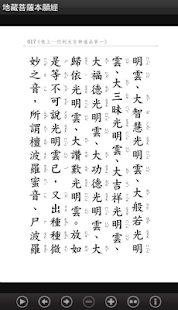 地藏菩薩本願經
017 (卷上—忉利天宮神通品第一)
明雲、大智慧光明雲、大般若光
明雲、大三昧光明雲、大吉祥光明雲、
大福德光明雲、大功德光明雲、大
歸依光明雲、大讚歎光明雲。放如
是等不可說光明雲已，又出種種微
妙之音，所謂檀波羅蜜音、尸波羅